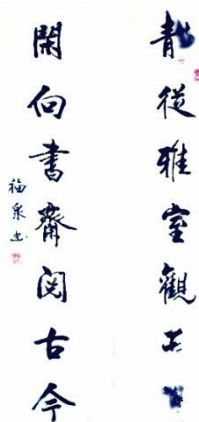 從雅室觀
閑向書齋閱古今
福泉書